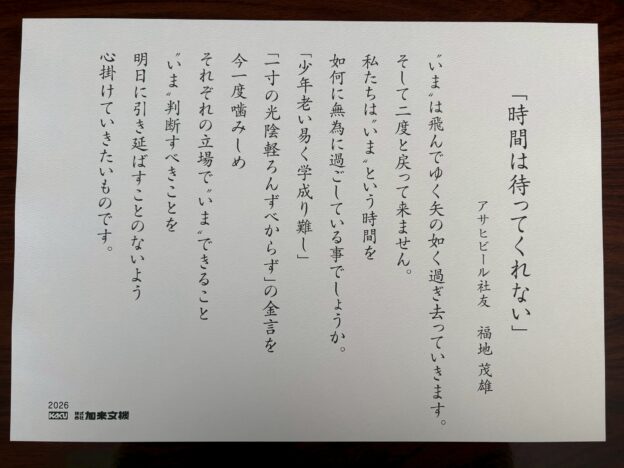 「時間は待ってくれない」
アサヒビール社友　福地 茂雄
〝いま〟は飛んでゆく矢の如く過ぎ去っていきます。
そして二度と戻って来ません。
私たちは〝いま〟という時間を
如何に無為に過ごしている事でしょうか。
「少年老い易く学成り難し」
「一寸の光陰軽ろんずべからず」の金言を
今一度噛みしめ
それぞれの立場で〝いま〟できること
〝いま〟判断すべきことを
明日に引き延ばすことのないよう
心掛けていきたいものです。
2026
KaKU 株式会社 加来文機